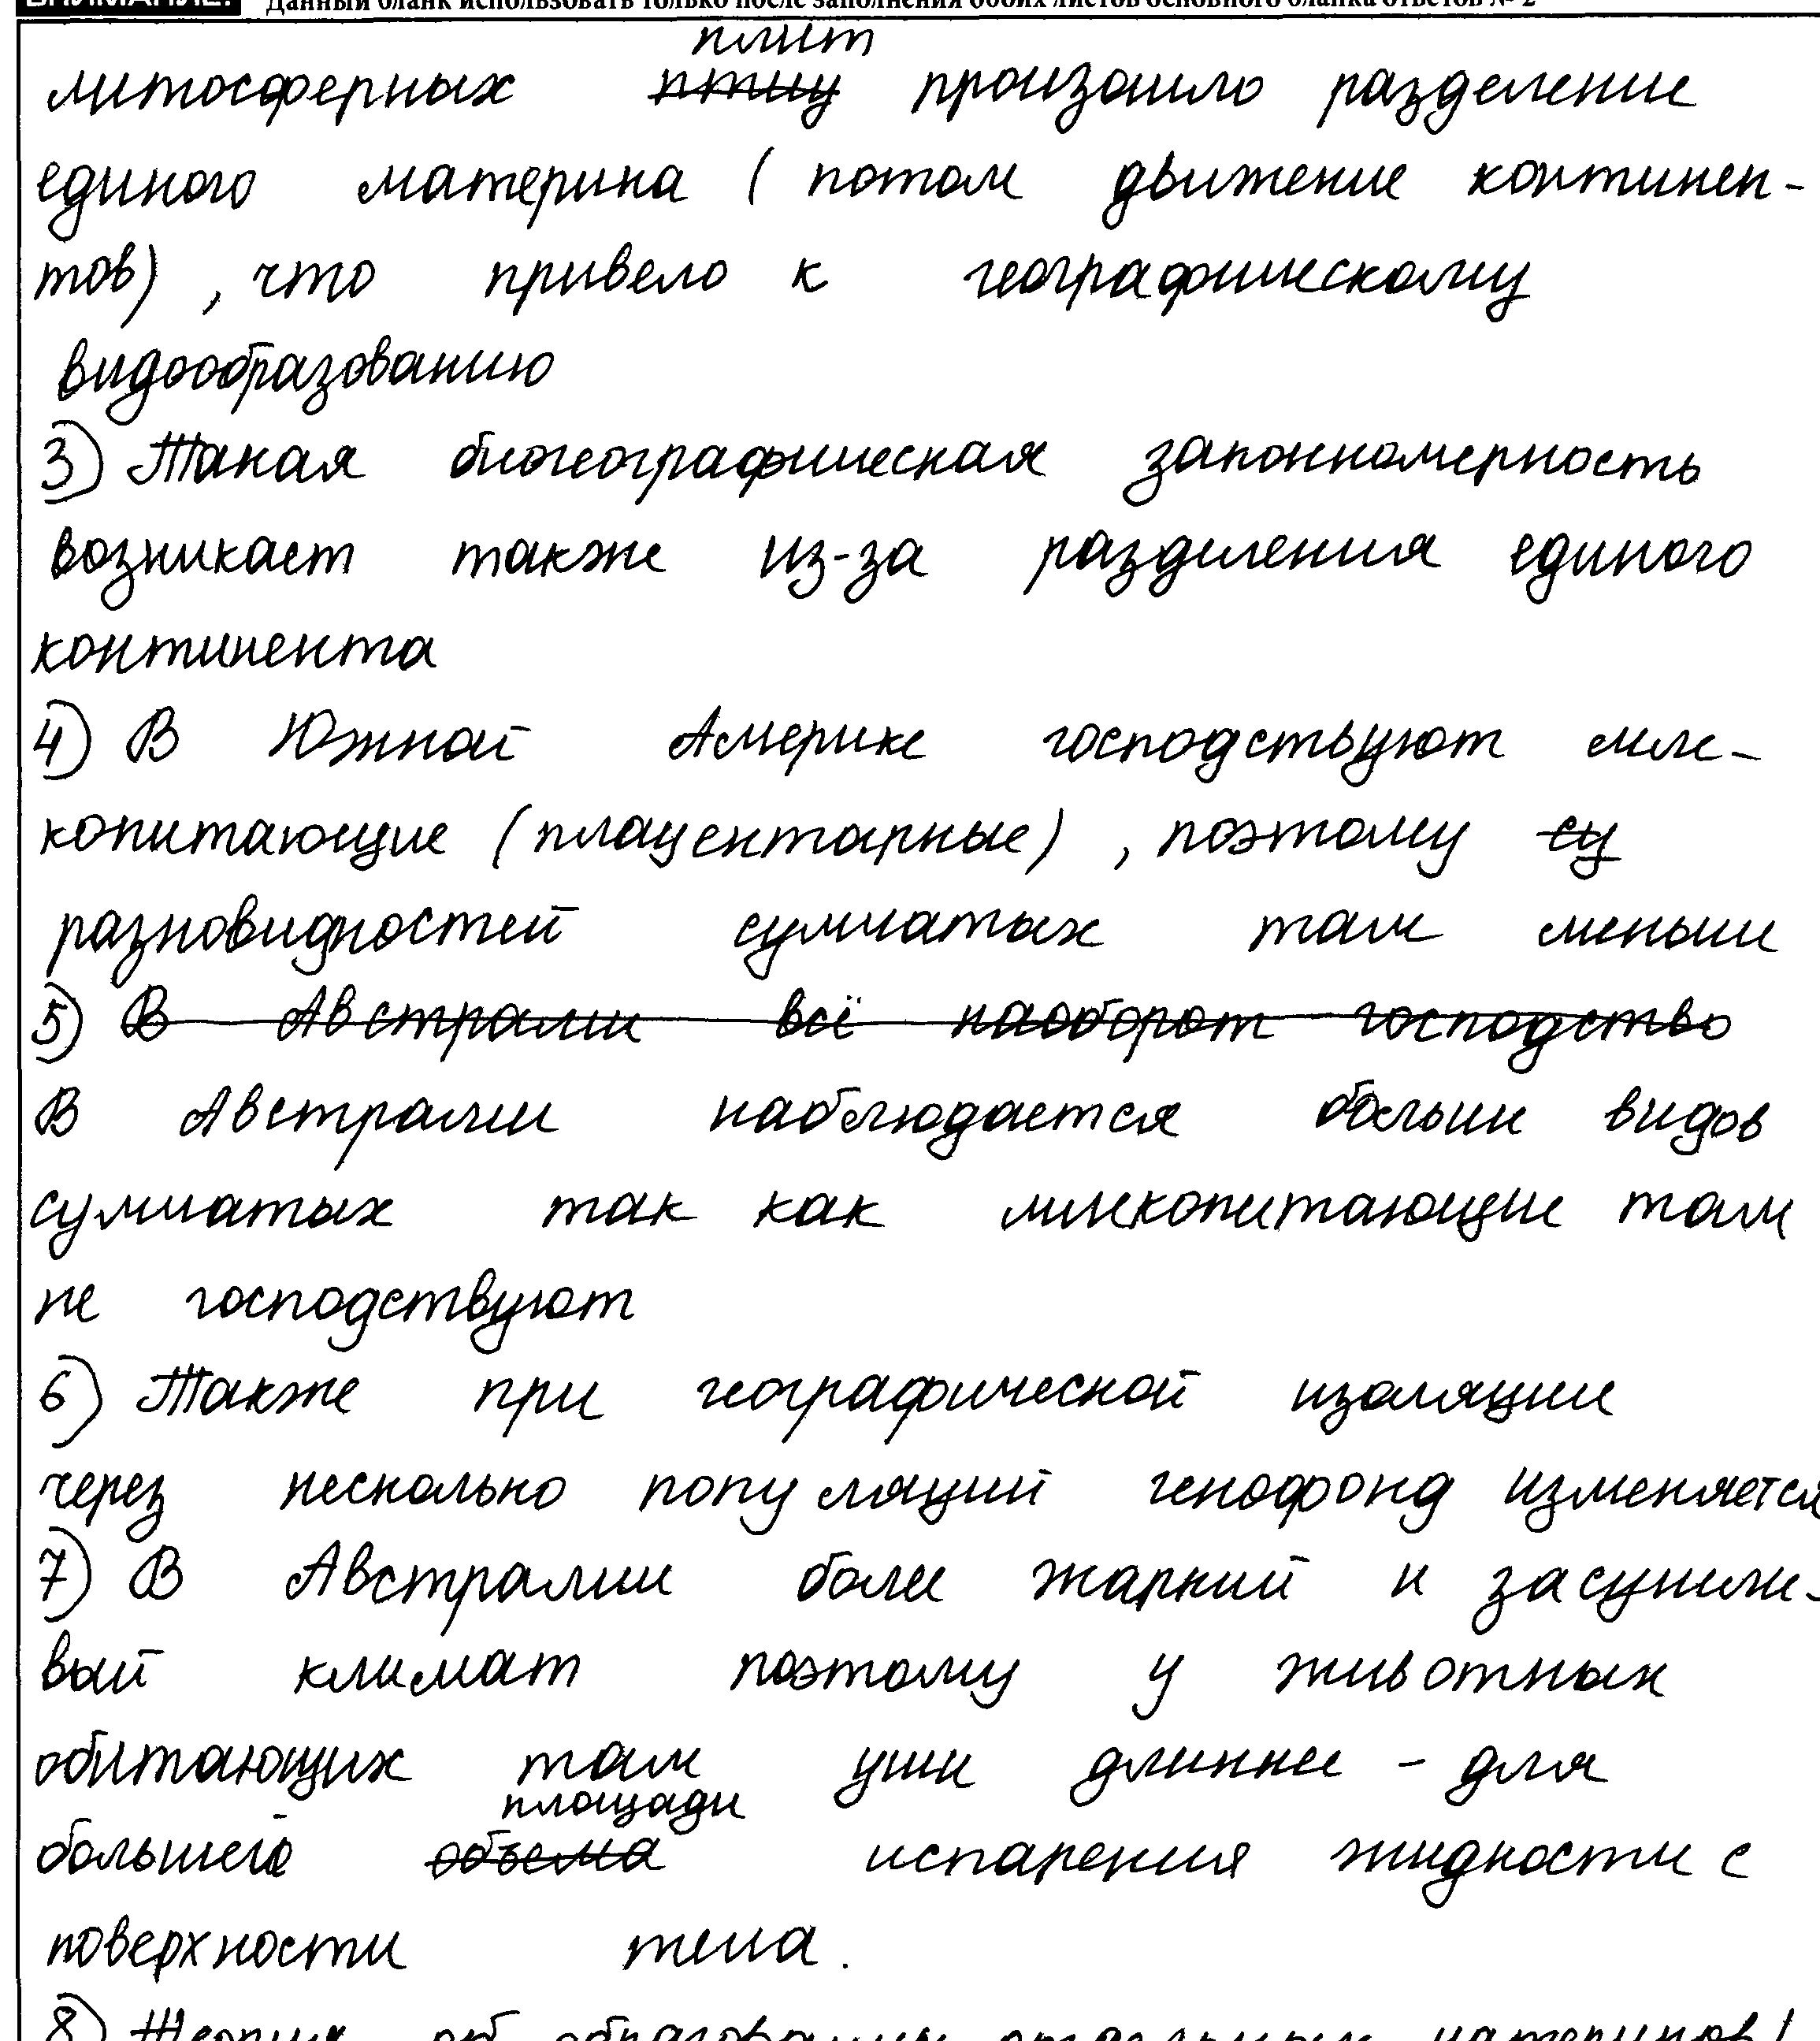 ВНИМАНИЕ! Данный бланк использовать только после заполнения обоих листов основного бланка ответов № 2
плит
литосферных птиц произошло разделение
единого материка (потом движение континен-
тов), что привело к географическому
видообразованию
3) Такая биогеографическая закономерность
возникает также из-за разделения единого
континента
4) В Южной Америке господствуют мле-
копитающие (плацентарные), поэтому су
разновидностей сумчатых там меньше
5) В Австралии всё наоборот господство
В Австралии наблюдается больше видов
сумчатых так как млекопитающие там
не господствуют
6) Также при географической изоляции
через несколько популяций генофонд изменяется
7) В Австралии более жаркий и засушли-
вый климат поэтому у животных
обитающих там уши длиннее - для
площади
большей объема испарения жидкости с
поверхности тела.
8) Теория об образовании отдельных материков